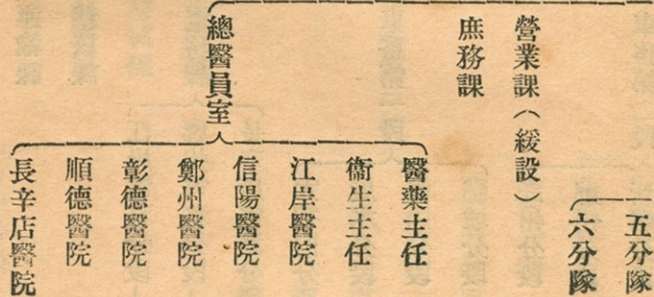 五分隊
六分隊
營業課（緩設）
庶務課
總醫員室
醫藥主任
衞生主任
江岸醫院
信陽醫院
鄭州醫院
彰德醫院
順德醫院
長辛店醫院